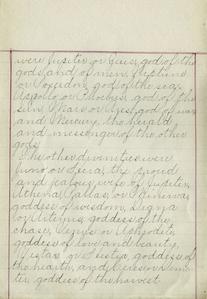 were Jupiter or Zeus, god of the
gods and of men, Neptune
or Poseidon, god of the sea,
Apollo or Phoebus, god of the
sun, Mars or Ares, god of war
and Mercury, the herald
and messenger of the other
gods.
The other divinities were
Juno or Hera, the proud
and jealous wife of Jupiter,
Athena, Pallas, or Minerva,
goddess of wisdom, Diana
or Artemis, goddess of the
chase, Venus or Aphrodite
goddess of love and beauty,
Vestas or Hestia, goddess of
the hearth, and Ceres or
goddess of the harvest